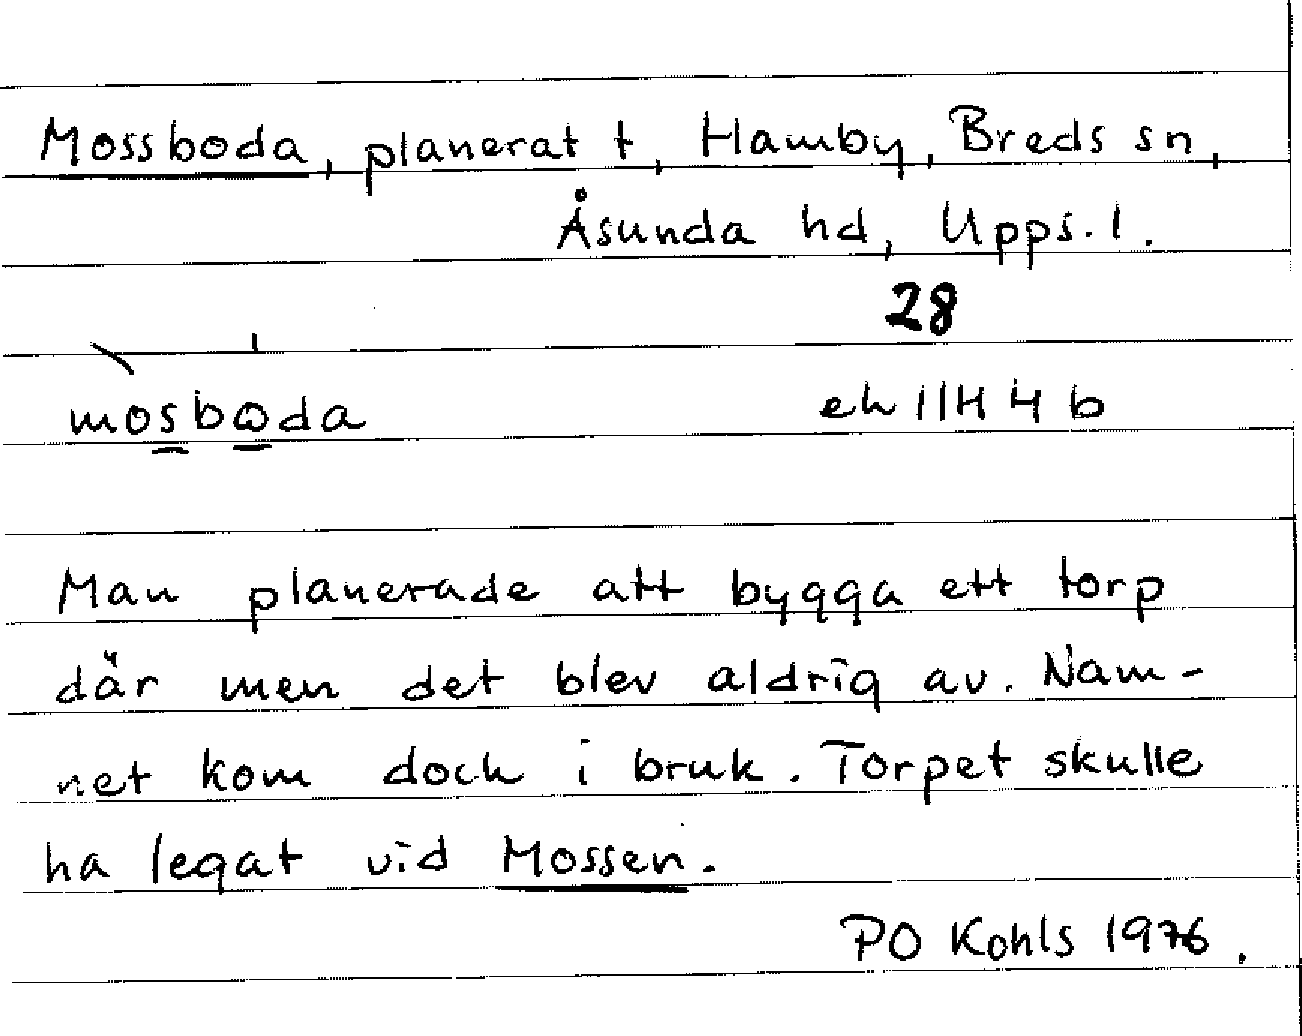 Mossboda, planerat t, Hamby, Breds sn,
Åsunda hd, Upps. l.
28
mosboda ek 11H 4 b
Man planerade att bygga ett torp
där men det blev aldrig av. Nam-
net kom dock i bruk. Torpet skulle
ha legat vid Mossen.
PO Kohls 1976.